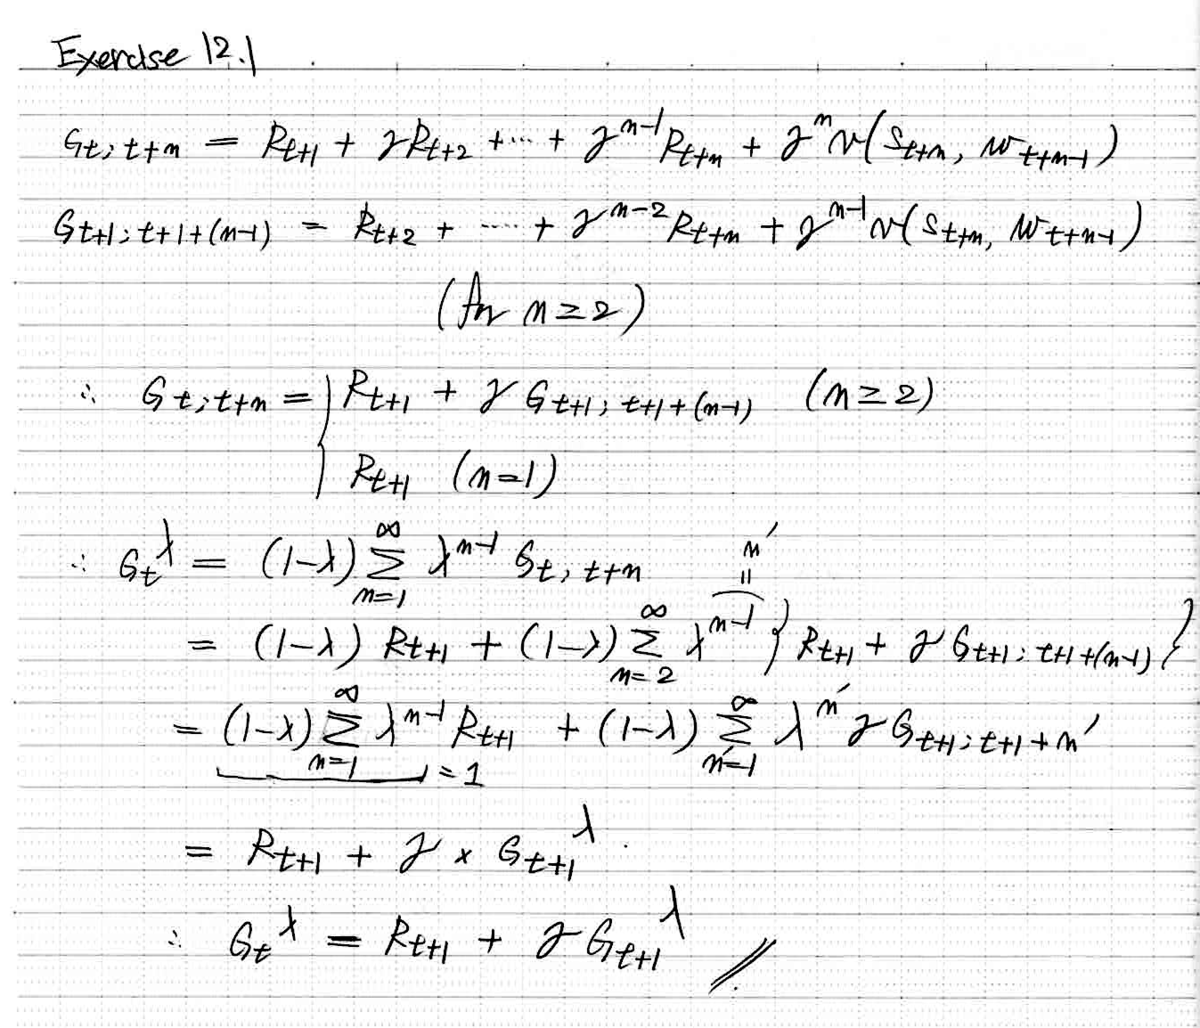 Exercise 12.1
G_{t:t+n} = R_{t+1} + γR_{t+2} + ⋯ + γ^{n-1}R_{t+n} + γ^n v(S_{t+n}, w_{t+n-1})
G_{t+1:t+1+(n-1)} = R_{t+2} + ⋯ + γ^{n-2}R_{t+n} + γ^{n-1}v(S_{t+n}, w_{t+n-1})
(for n≥2)
∴ G_{t:t+n} = { R_{t+1} + γ G_{t+1:t+1+(n-1)} (n≥2)
R_{t+1} (n=1)
∴ G_t^λ = (1-λ) Σ_{n=1}^{∞} λ^{n-1} G_{t:t+n}
n'
=
= (1-λ) R_{t+1} + (1-λ) Σ_{n=2}^{∞} λ^{n-1} { R_{t+1} + γ G_{t+1:t+1+(n-1)} }
= (1-λ) Σ_{n=1}^{∞} λ^{n-1} R_{t+1} + (1-λ) Σ_{n'=1}^{∞} λ^{n'} γ G_{t+1:t+1+n'}
= 1
= R_{t+1} + γ × G_{t+1}^λ
∴ G_t^λ = R_{t+1} + γ G_{t+1}^λ //